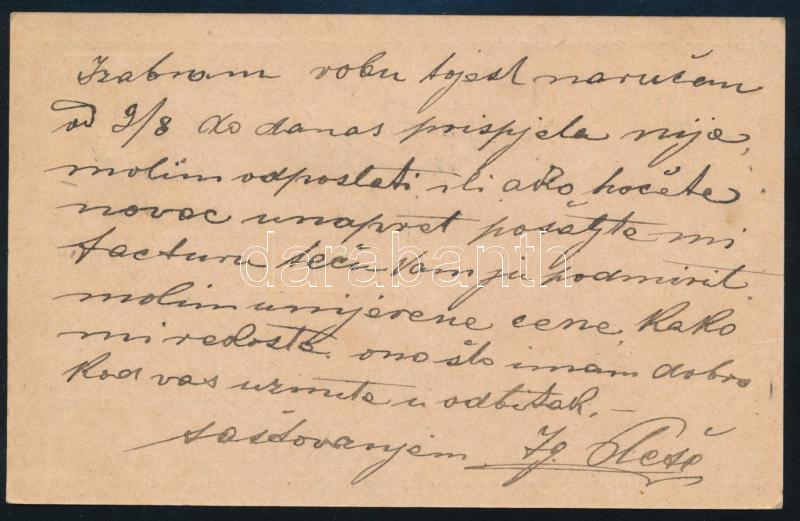 Izabram robu tojest naručem
od 9/8 do danas prispjela nije,
molim odposlati ili ako hoćete
novac unapret pošaljte mi
facturu ću Vam ju podmirit
molim umjerene cene kako
mi redoste. ono što imam dobro
kod vas uzmite u odbitak. –
saštovanjem Ig. Pleše
darabanth